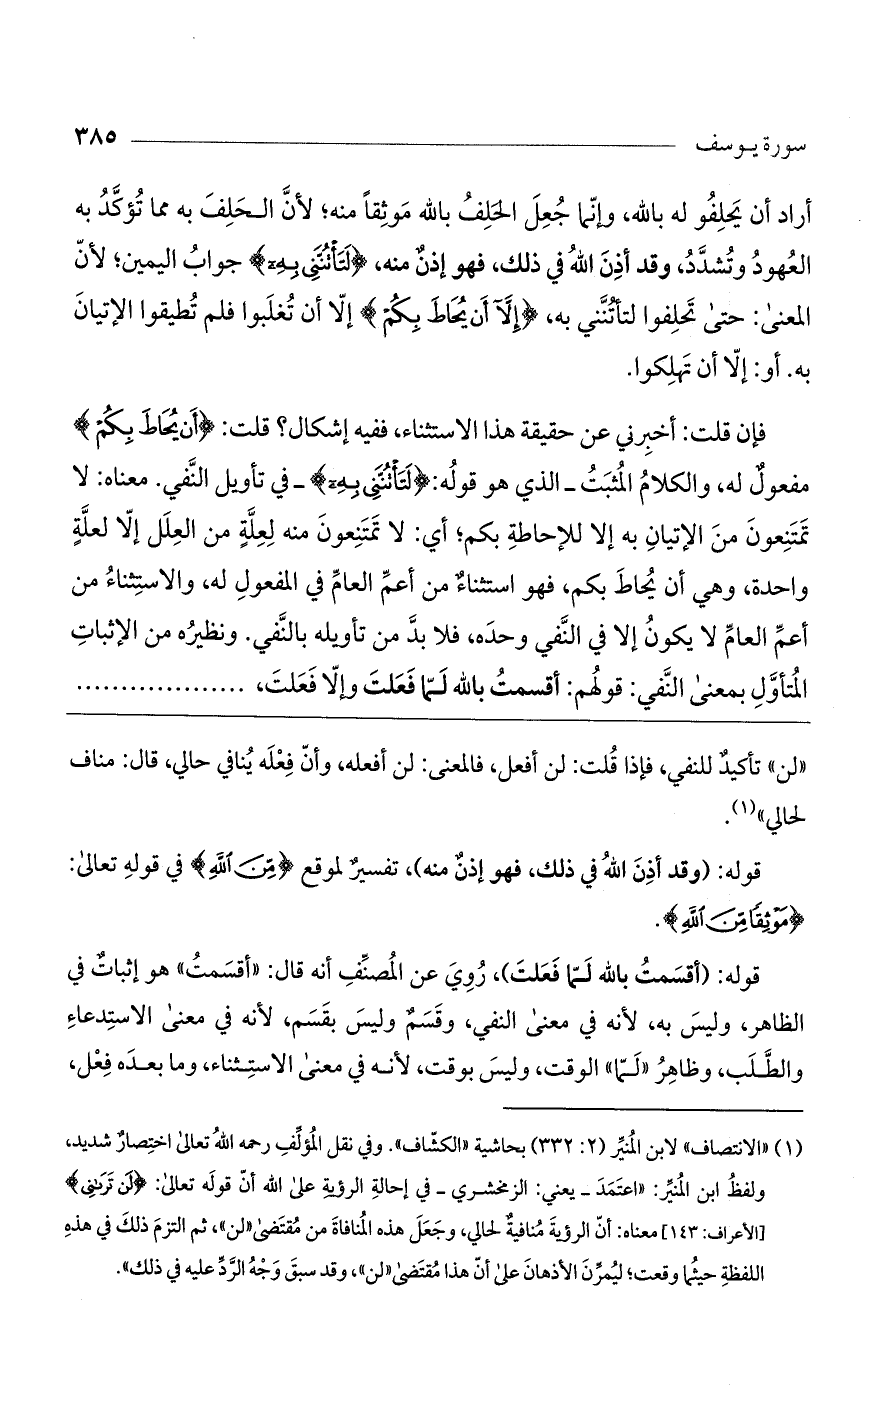 سورة يوسف ٣٨٥
أراد أن يَحلِفُو له بالله، وإنّما جُعِلَ الحَلِفُ بالله مَوثِقاً منه؛ لأنَّ الـحَلِفَ به مما تُؤكَّدُ به
العُهودُ وتُشدَّدُ، وقد أَذِنَ اللهُ في ذلك، فهو إذنٌ منه، ﴿لَتَأْتُنَّنِي بِهِۦٓ﴾ جوابُ اليمين؛ لأنّ
المعنىٰ: حتىٰ تَحلِفوا لتأتُنَّني به، ﴿إِلَّآ أَن يُحَاطَ بِكُمْ﴾ إلّا أن تُغلَبوا فلم تُطيقوا الإتيانَ
به. أو: إلّا أن تَهلِكوا.
فإن قلت: أخبِرني عن حقيقة هذا الاستثناء، ففيه إشكال؟ قلت: ﴿أَن يُحَاطَ بِكُمْ﴾
مفعولٌ له، والكلامُ المُثبَتُ ـ الذي هو قولُه: ﴿لَتَأْتُنَّنِي بِهِۦٓ﴾ ـ في تأويل النَّفي. معناه: لا
تَمتَنِعونَ منَ الإتيانِ به إلا للإحاطةِ بكم؛ أي: لا تَمتَنِعونَ منه لِعِلَّةٍ من العِلَل إلّا لعلَّةٍ
واحدة، وهي أن يُحاطَ بكم، فهو استثناءٌ من أعمِّ العامِّ في المفعول له، والاستِثناءُ من
أعمِّ العامِّ لا يكونُ إلا في النَّفي وحدَه، فلا بدَّ من تأويله بالنَّفي. ونظيرُه من الإثباتِ
المُتأوَّلِ بمعنىٰ النَّفي: قولُهم: أقسمتُ بالله لَـمّا فَعَلتَ وإلّا فَعَلتَ، ...................
«لن» تأكيدٌ للنفي، فإذا قُلت: لن أفعل، فالمعنى: لن أفعله، وأنّ فِعْلَه يُنافي حالي، قال: مناف
لحالي»(١).
قوله: (وقد أذِنَ اللهُ في ذلك، فهو إذنٌ منه)، تفسيرٌ لموقع ﴿مِّنَ ٱللَّهِ﴾ في قولِهِ تعالىٰ:
﴿مَوْثِقًا مِّنَ ٱللَّهِ﴾.
قوله: (أقسَمتُ بالله لَـمّا فَعَلتَ)، رُوِيَ عن المُصنِّفِ أنه قال: «أقسَمتُ» هو إثباتٌ في
الظاهر، وليسَ به، لأنه في معنىٰ النفي، وقَسَمٌ وليسَ بقَسَم، لأنه في معنىٰ الاستِدعاءِ
والطَّلَب، وظاهِرُ «لَـمّا» الوقت، وليسَ بوقت، لأنـه في معنىٰ الاستِـثناء، وما بعـدَه فِعْل،
(١) «الانتصاف» لابن المُنيِّر (٢: ٣٣٢) بحاشية «الكشّاف». وفي نقل المُؤلِّفِ رحمه اللهُ تعالىٰ اختِصارٌ شديد،
ولفظُ ابن المُنيِّر: «اعتَمَدَ ـ يعني: الزمخشري ـ في إحالةِ الرؤيةِ علىٰ الله أنّ قولَه تعالىٰ: ﴿لَن تَرَىٰنِي﴾
[الأعراف: ١٤٣] معناه: أنّ الرؤيةَ مُنافيةٌ لحالي، وجَعَلَ هذه المُنافاةَ من مُقتَضىٰ «لن»، ثم التزمَ ذلكَ في هذهِ
اللفظةِ حيثُما وقعت؛ ليُمرِّنَ الأذهانَ علىٰ أنّ هذا مُقتَضىٰ «لن»، وقد سبقَ وَجْهُ الرَّدِّ عليه في ذلك».